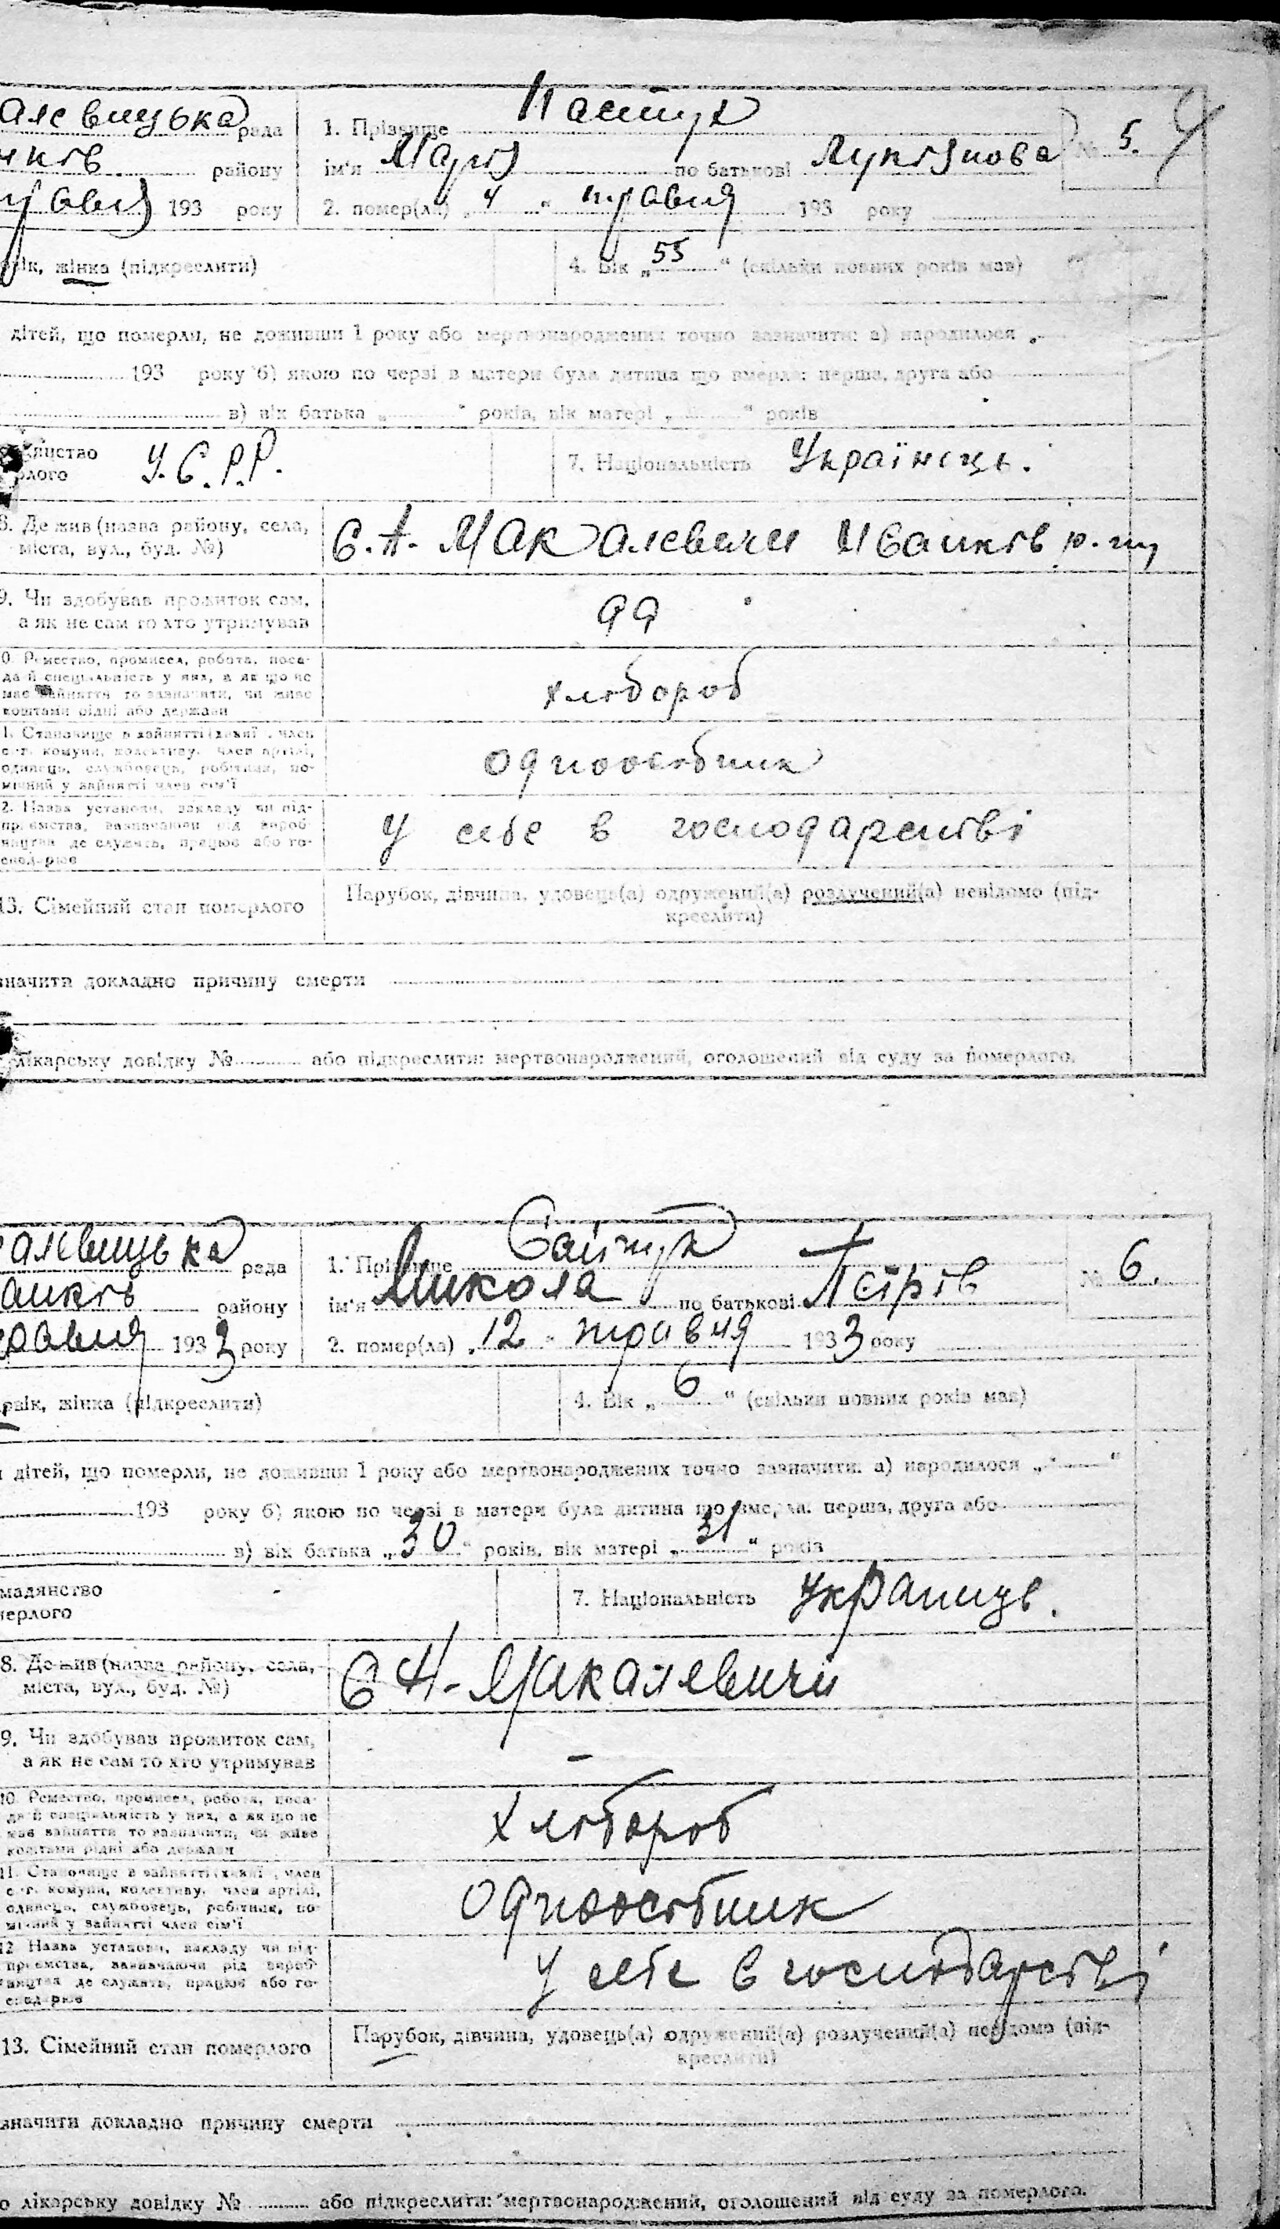 алевицька рада
нків району
193 року
1. Прізвище Пастух
ім'я Марія по батькові Лук'янова
№ 5.
2. помер(ла) „ 4 “ травня 193 року
жінка (підкреслити)
4. Вік „ 55 “ (скільки повних років мав)
дітей, що померли, не доживши 1 року або мертвонароджених точно зазначити: а) народилося „
193 року б) якою по черзі в матери була дитина що вмерла: перша, друга або
в) вік батька „ “ років, вік матері „ “ років
У.С.Р.Р.
7. Національність Українець.
8. Де жив (назва району, села,
міста, вул., буд. №)
С.А. Макалевичи Иванків р-ну
9. Чи здобував прожиток сам,
а як не сам то хто утримував
10. Ремество, промисел, робота, поса-
да й спеціяльність у них, а як що не
мав зайняття то зазначити, чи живе
коштами рідні або держави
хлібороб
11. Становище в зайнятті (хазяї, член
с.-г. комуни, колективу, член артілі,
одинець, службовець, робітник, по-
мічний у зайнятті член сім'ї
одноосібник
12. Назва установи, закладу чи під-
приємства, зазначаючи рід вироб-
ництва де служить, працює або го-
сподарює
у себе в господарстві
13. Сімейний стан померлого
Парубок, дівчина, удовець(а) одружений(а) розлучений(а) невідомо (під-
креслити)
значити докладно причину смерти
лікарську довідку № або підкреслити: мертвонароджений, оголошений від суду за померлого.
алевицька рада
анків району
травня 1933 року
1. Прізвище
ім'я Микола по батькові Петрів
№ 6.
2. помер(ла) „ 12 “ травня 1933 року
жінка (підкреслити)
4. Вік „ 6 “ (скільки повних років мав)
дітей, що померли, не доживши 1 року або мертвонароджених точно зазначити: а) народилося „ “
193 року б) якою по черзі в матери була дитина що вмерла: перша, друга або
в) вік батька „ 30 “ років, вік матері „ 31 “ років
мадянство
мерлого
7. Національність Украинць.
8. Де жив (назва району, села,
міста, вул., буд. №)
С Н-Макалевичи
9. Чи здобував прожиток сам,
а як не сам то хто утримував
–
10. Ремество, промисел, робота, поса-
да й спеціяльність у них, а як що не
мав зайняття то зазначити, чи живе
коштами рідні або держави
хлібороб
11. Становище в зайнятті (хазяї, член
с.-г. комуни, колективу, член артілі,
одинець, службовець, робітник, по-
мічний у зайнятті член сім'ї
одноосібник
12. Назва установи, закладу чи під-
приємства, зазначаючи рід вироб-
ництва де служить, працює або го-
сподарює
у себе в господарстві
13. Сімейний стан померлого
Парубок, дівчина, удовець(а) одружений(а) розлучений(а) невідомо (під-
креслити)
значити докладно причину смерти
о лікарську довідку № або підкреслити: мертвонароджений, оголошений від суду за померлого.